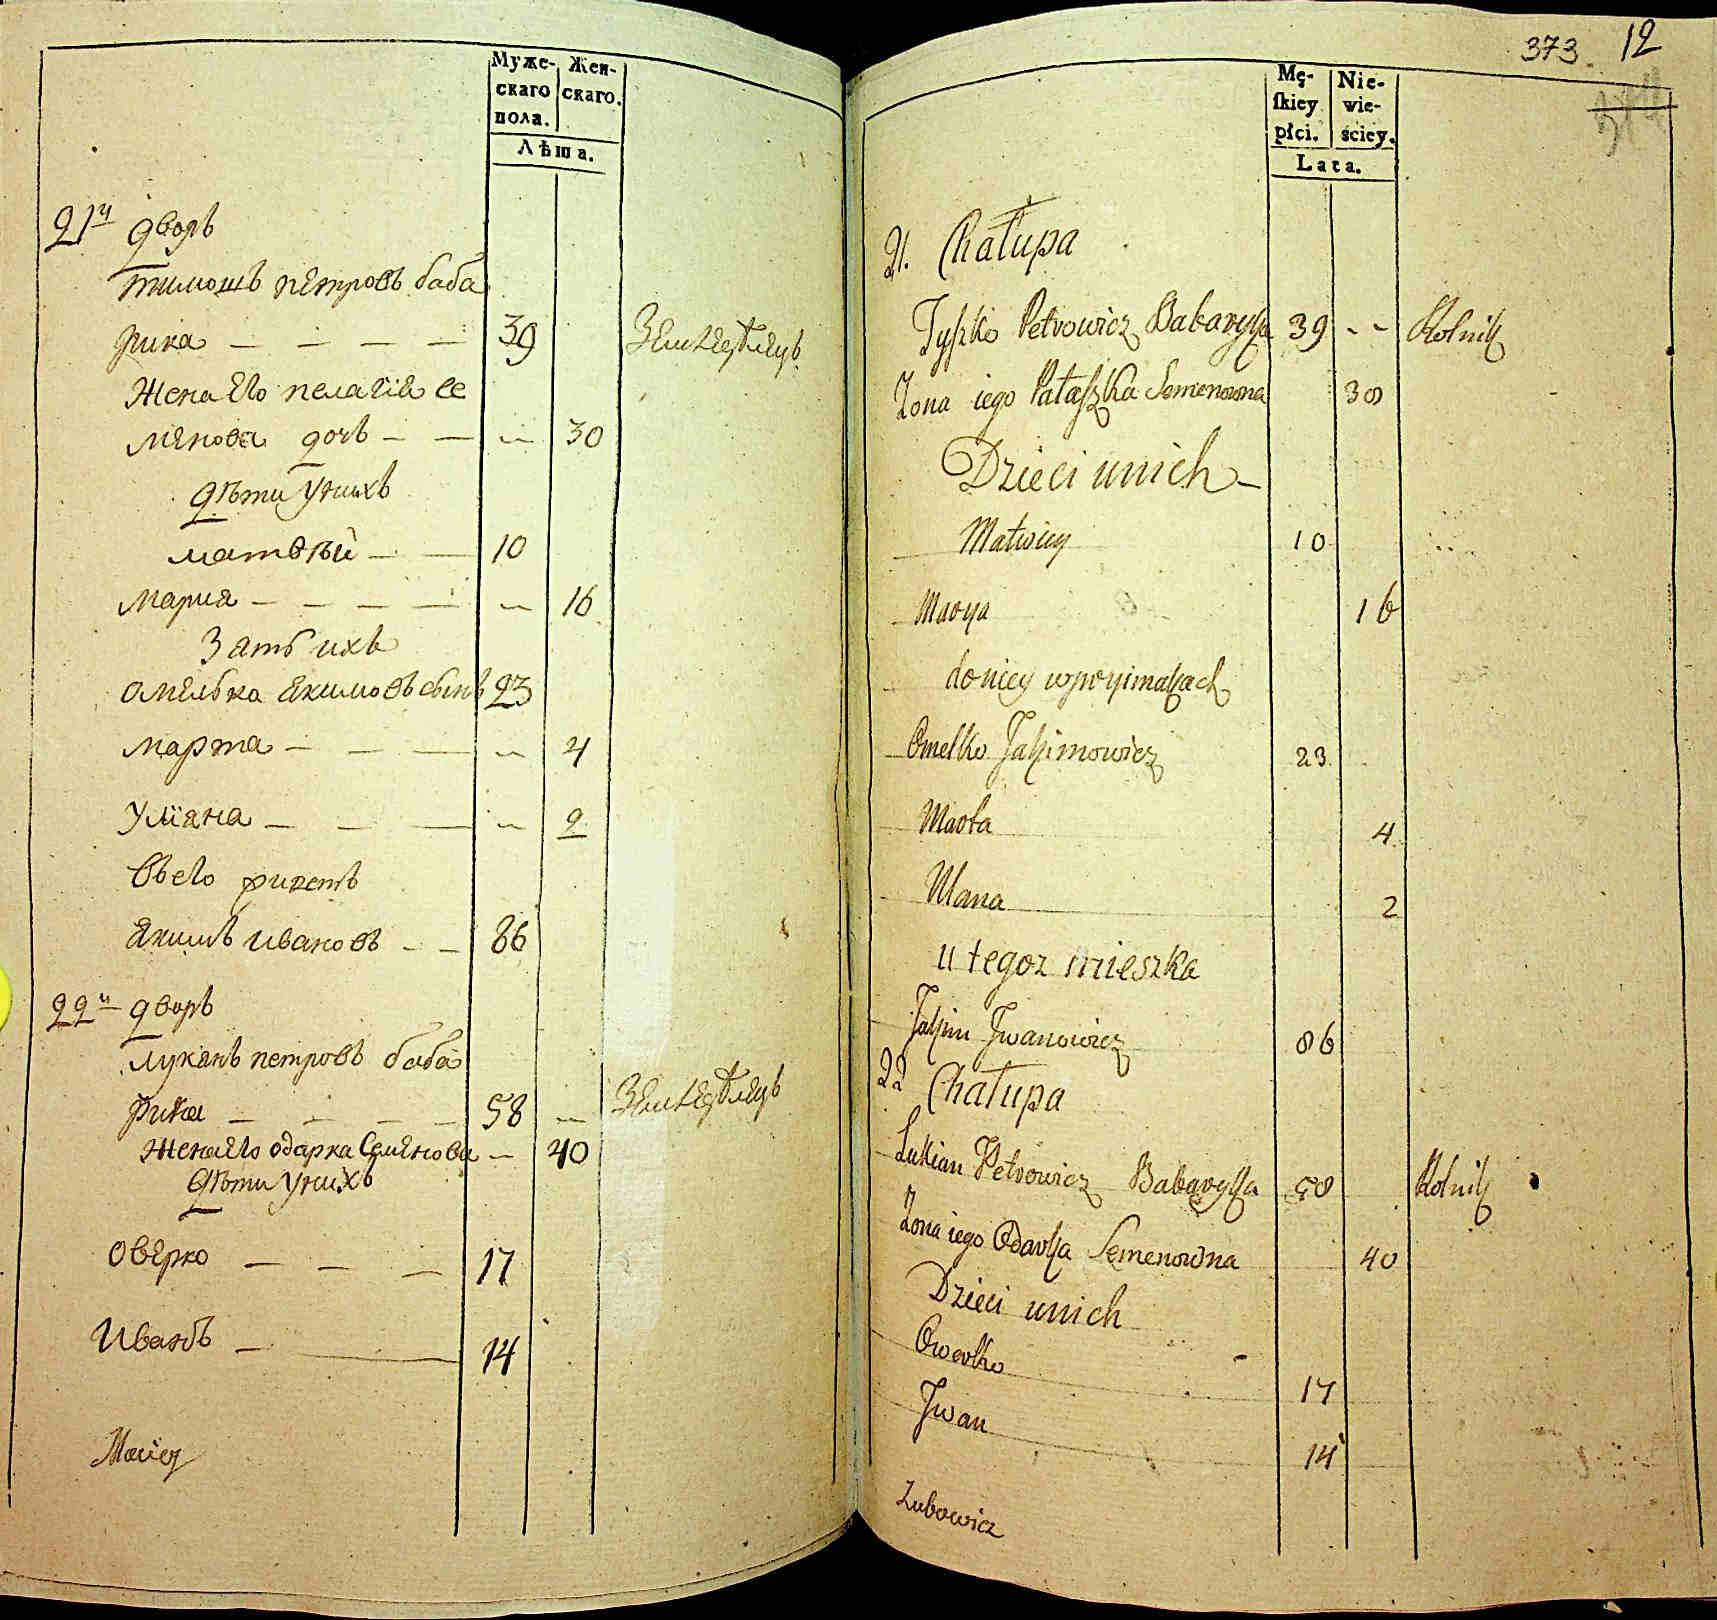 Муже-
скаго
пола.
Жен-
скаго.
Лѣта.
21й дворъ
тимошъ петровъ баба
рика — — — — 39 Земледѣлецъ
Жена его пелагія се
менова дочъ — — — 30
дѣти унихъ
матвѣй — — 10
Мария — — — — — 16
Зать ихъ
омелько якимовъ сынъ 23
марта — — — — 4
улiана — — — — 2
въего
якимъ ивановъ — — 86
22й дворъ
лукянъ петровъ баба
рика — — — — 58 — Земледѣлецъ
Жена его одарка Семенова — 40
дѣти унихъ
оверко — — — 17
Иванъ — — 14
Maciey
373. 12
Mę-
ſkiey
płci.
Nie-
wie-
ściey.
Lata.
21. Chałupa
Tyszko Petrowicz Babaryka 39 - - Rolnik
Żona iego Pałaszka Semenowna 30
Dzieci unich
Matwiey 10
Marya 16
do niey w prymakach
Omelko Jakimowicz 23
Marta 4
Ulana 2
u tegoz mieszka
Jakim Jwanowicz 86
22 Chałupa
Lukian Petrowicz Babaryka 58 Rolnik
Żona iego Odarka Semenowna 40
Dzieci unich
Owerko 17
Jwan 14
Zubowicz